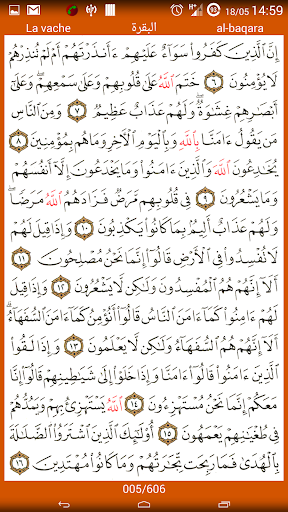 18/05 14:59
La vache البقرة al-baqara
إِنَّ ٱلَّذِينَ كَفَرُوا۟ سَوَآءٌ عَلَيْهِمْ ءَأَنذَرْتَهُمْ أَمْ لَمْ تُنذِرْهُمْ
لَا يُؤْمِنُونَ ٦ خَتَمَ ٱللَّهُ عَلَىٰ قُلُوبِهِمْ وَعَلَىٰ سَمْعِهِمْ ۖ وَعَلَىٰٓ
أَبْصَٰرِهِمْ غِشَٰوَةٌ ۖ وَلَهُمْ عَذَابٌ عَظِيمٌ ٧ وَمِنَ ٱلنَّاسِ
مَن يَقُولُ ءَامَنَّا بِٱللَّهِ وَبِٱلْيَوْمِ ٱلْءَاخِرِ وَمَا هُم بِمُؤْمِنِينَ ٨
يُخَٰدِعُونَ ٱللَّهَ وَٱلَّذِينَ ءَامَنُوا۟ وَمَا يَخْدَعُونَ إِلَّآ أَنفُسَهُمْ
وَمَا يَشْعُرُونَ ٩ فِى قُلُوبِهِم مَّرَضٌ فَزَادَهُمُ ٱللَّهُ مَرَضًا ۖ
وَلَهُمْ عَذَابٌ أَلِيمٌۢ بِمَا كَانُوا۟ يَكْذِبُونَ ١٠ وَإِذَا قِيلَ لَهُمْ
لَا تُفْسِدُوا۟ فِى ٱلْأَرْضِ قَالُوٓا۟ إِنَّمَا نَحْنُ مُصْلِحُونَ ١١
أَلَآ إِنَّهُمْ هُمُ ٱلْمُفْسِدُونَ وَلَٰكِن لَّا يَشْعُرُونَ ١٢ وَإِذَا قِيلَ
لَهُمْ ءَامِنُوا۟ كَمَآ ءَامَنَ ٱلنَّاسُ قَالُوٓا۟ أَنُؤْمِنُ كَمَآ ءَامَنَ ٱلسُّفَهَآءُ ۗ
أَلَآ إِنَّهُمْ هُمُ ٱلسُّفَهَآءُ وَلَٰكِن لَّا يَعْلَمُونَ ١٣ وَإِذَا لَقُوا۟
ٱلَّذِينَ ءَامَنُوا۟ قَالُوٓا۟ ءَامَنَّا وَإِذَا خَلَوْا۟ إِلَىٰ شَيَٰطِينِهِمْ قَالُوٓا۟ إِنَّا
مَعَكُمْ إِنَّمَا نَحْنُ مُسْتَهْزِءُونَ ١٤ ٱللَّهُ يَسْتَهْزِئُ بِهِمْ وَيَمُدُّهُمْ
فِى طُغْيَٰنِهِمْ يَعْمَهُونَ ١٥ أُو۟لَٰٓئِكَ ٱلَّذِينَ ٱشْتَرَوُا۟ ٱلضَّلَٰلَةَ
بِٱلْهُدَىٰ فَمَا رَبِحَت تِّجَٰرَتُهُمْ وَمَا كَانُوا۟ مُهْتَدِينَ ١٦
005/606